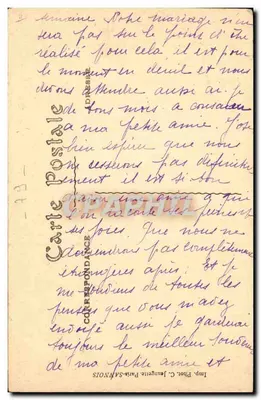 semaine. Notre mariage n'en
sera pas sur le point d'être
réalisé pour cela il est pour
le moment en deuil et nous
devons attendre aussi
de tous mois a consacrer
a ma petite amie. J'ose
bien espérer que nous
ne cesserons pas
ement il est si bon
a que
l'on raconte ses peines et
ses joies. Que nous ne
deviendrons pas complètement
étrangères après. Et je
me souviens de toutes les
pensées que vous m'avez
envoyé aussi je garderai
toujours le meilleur souvenir
de ma petite amie et
Carte Postale
ADRESSE
CORRESPONDANCE
Imp. Phot. C. Jeangette Paris-SANNOIS